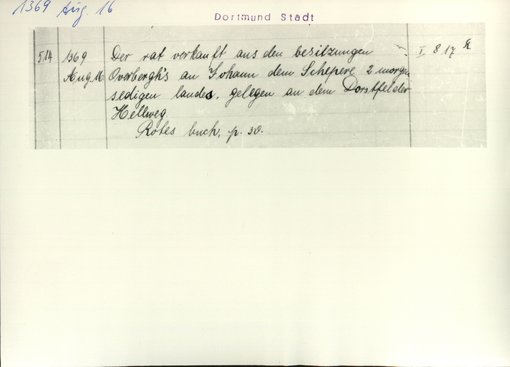 1369 Aug. 16
Dortmund Stadt
514 1369 Der rat verkauft aus den besitzungen I 8 17
Aug. 16 Overbergh's an Johann dem Schepere 2 morgen
sedigen landes, gelegen an dem Dorstfelder
Hellweg
Rotes buch, p. 30.